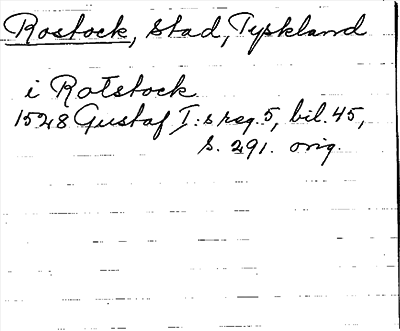 Rostock, stad, Tyskland
i Rotstock
1528 Gustaf I:s reg. 5, bil. 45,
s. 291. orig.